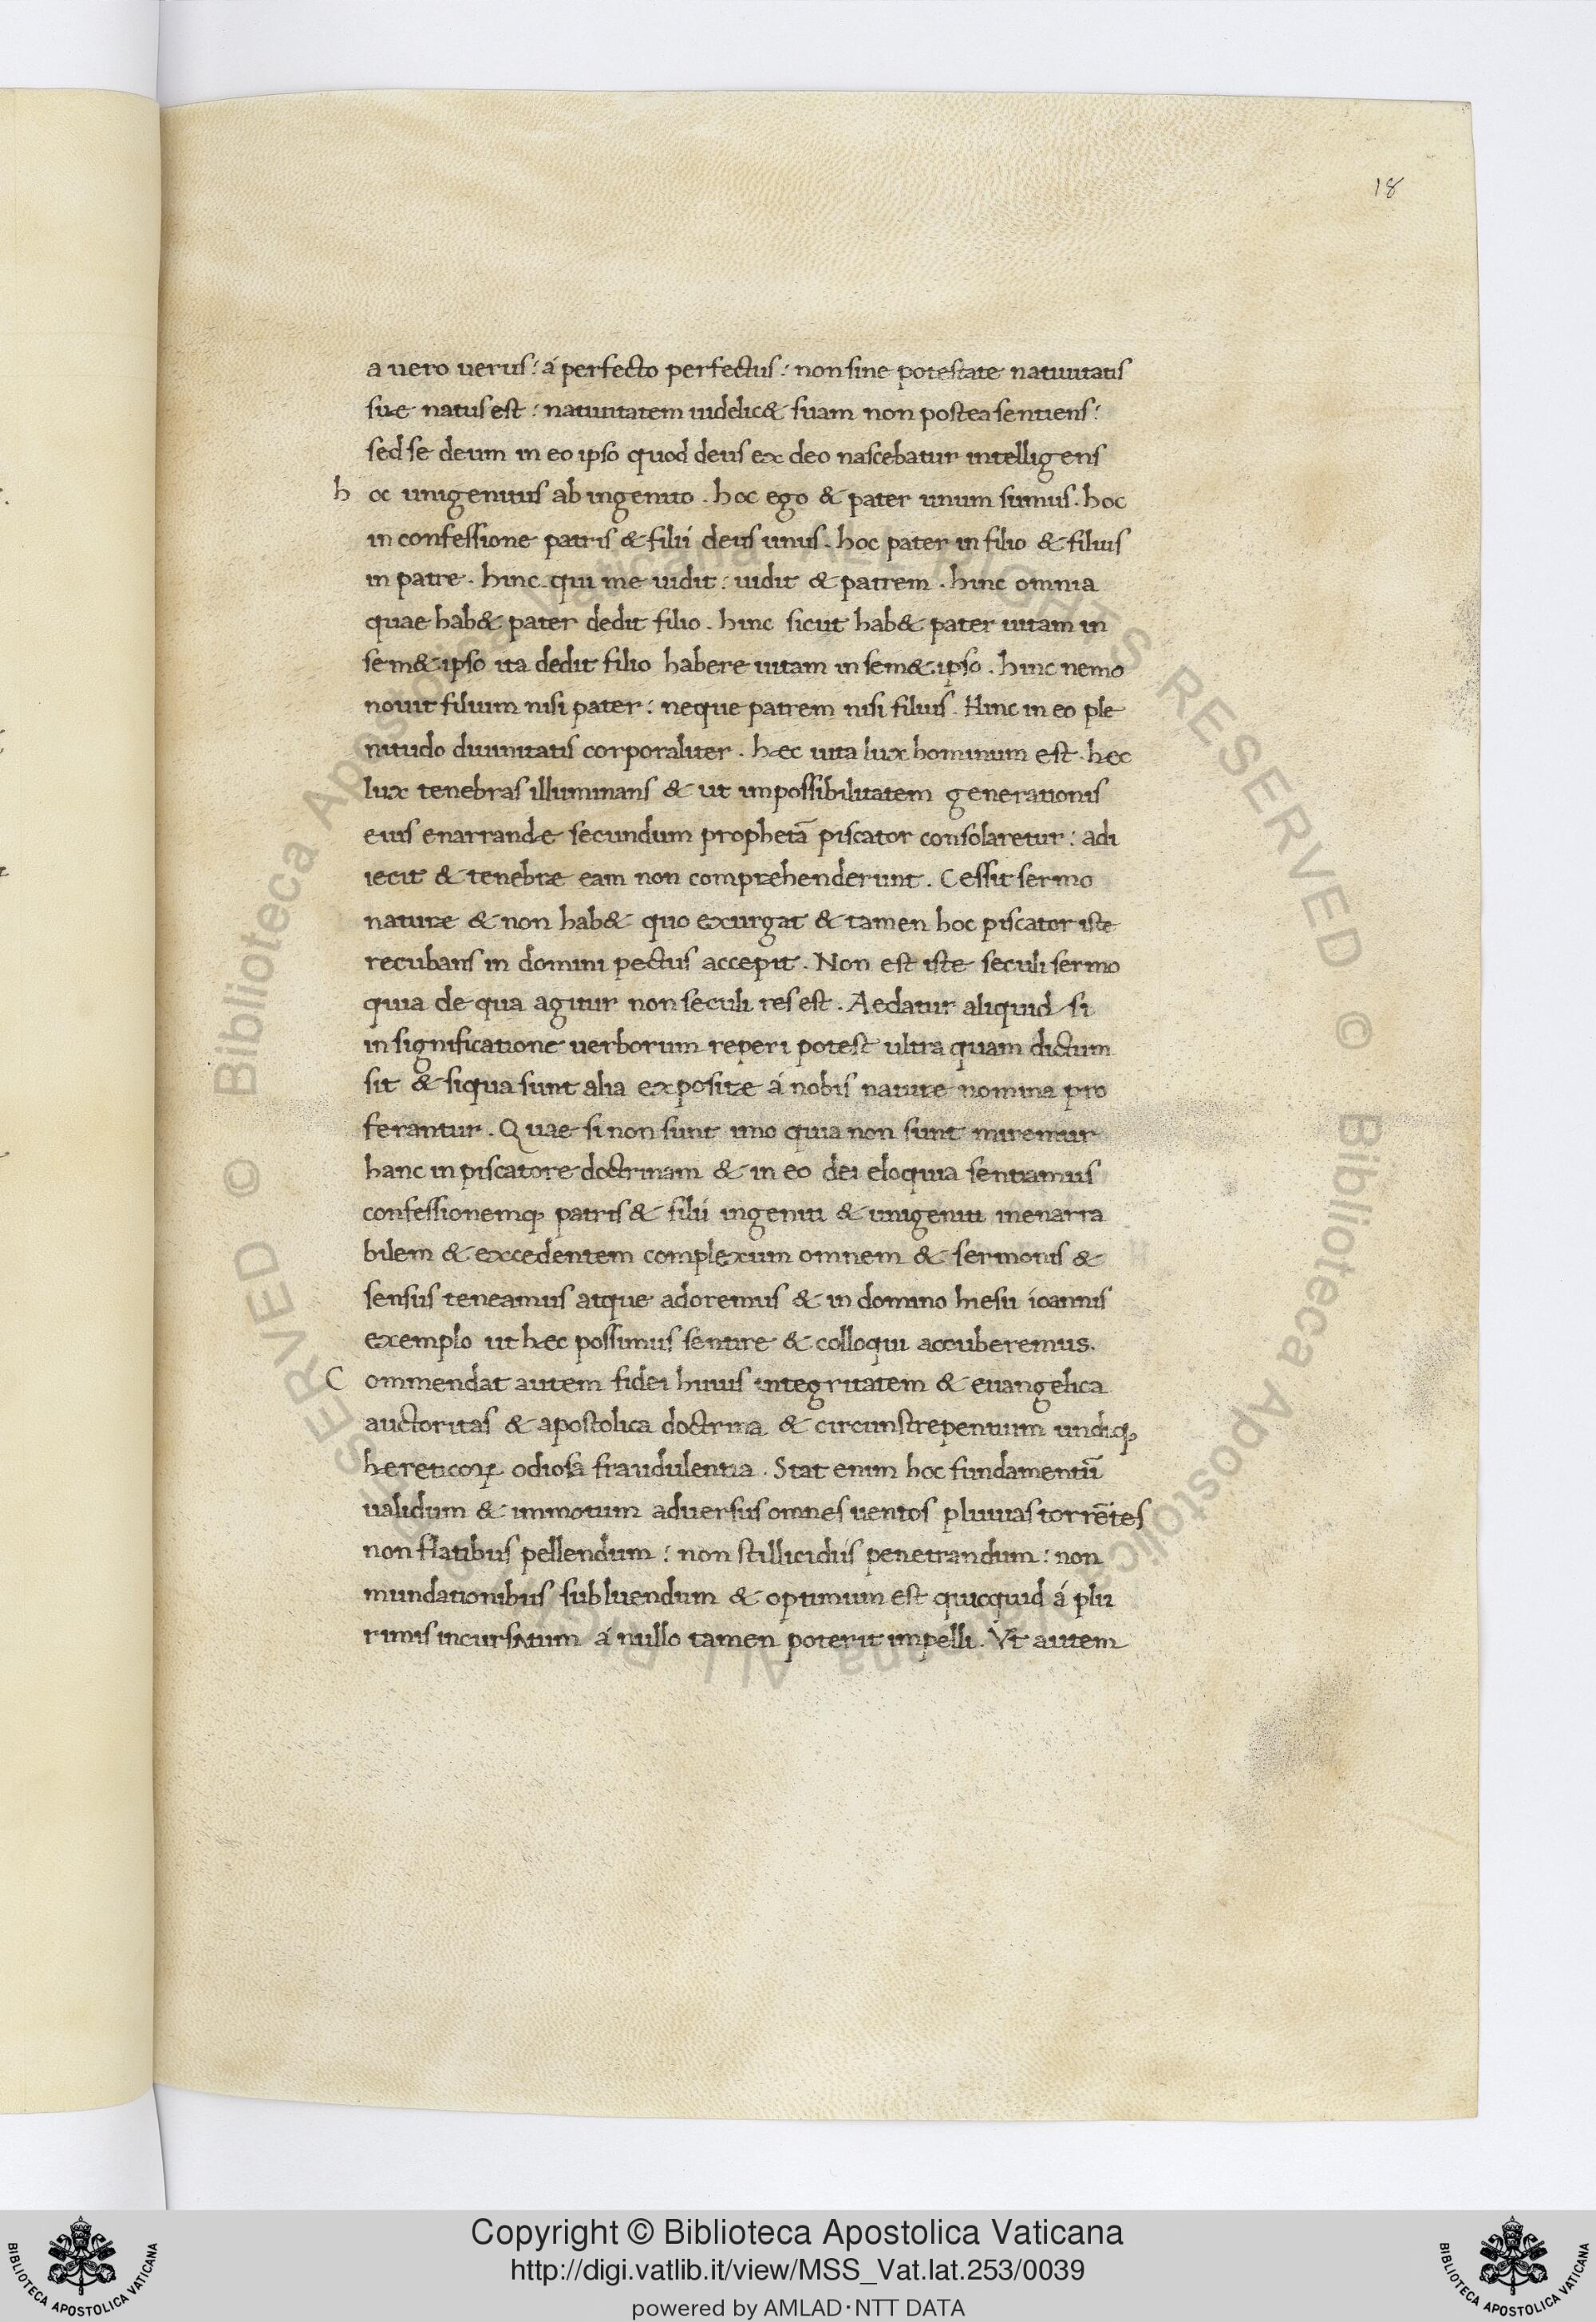 18
a uero uerus: á perfecto perfectus: non sine potestate natiuitatis
suę natus est: natiuitatem uidelic& suam non postea sentiens:
sed se deum in eo ipso quod deus ex deo nascebatur intelligens
h oc unigenitus ab ingenito. hoc ego & pater unum sumus. hoc
in confessione patris & filii deus unus. hoc pater in filio & filius
in patre. hinc qui me uidit: uidit & patrem. hinc omnia
quae hab& pater dedit filio. hinc sicut hab& pater uitam in
sem& ipso ita dedit filio habere uitam in sem& ipso. hinc nemo
nouit filium nisi pater: neque patrem nisi filius. Hinc in eo ple
nitudo diuinitatis corporaliter. hęc uita lux hominum est. hęc
lux tenebras illuminans & ut impossibilitatem generationis
eius enarrandę secundum prophetā piscator consolaretur: adi
iecit & tenebrę eam non compręhenderunt. Cessit sermo
naturę & non hab& quo exurgat & tamen hoc piscator iste
recubans in domini pectus accepit. Non est iste seculi sermo
quia de qua agitur non seculi res est. Aedatur aliquid si
in significatione uerborum reperi potest ultra quam dictum
sit & siqua sunt alia expositę á nobis naturę nomina pro
ferantur. Quae si non sunt imo quia non sunt miremur
hanc in piscatore doctrinam & in eo dei eloquia sentiamus
confessionemq; patris & filii ingeniti & unigeniti inenarra
bilem & excedentem complexum omnem & sermonis &
sensus teneamus atque adoremus & in domino hiesu ioannis
exemplo ut hęc possimus sentire & colloqui accuberemus.
C ommendat autem fidei huius integritatem & euangelica
auctoritas & apostolica doctrina & circunstrepentium undiq;
hęreticoꝝ odiosa fraudulentia. Stat enim hoc fundamentū
ualidum & immotum aduersus omnes uentos pluuias torrētes
non flatibus pellendum: non stillicidiis penetrandum: non
inundationibus subluendum & optimum est quicquid á plu
rimis incursatum á nullo tamen poterit impelli. Vt autem
Copyright © Biblioteca Apostolica Vaticana
http://digi.vatlib.it/view/MSS_Vat.lat.253/0039
powered by AMLAD·NTT DATA
BIBLIOTECA APOSTOLICA VATICANA
BIBLIOTECA APOSTOLICA VATICANA